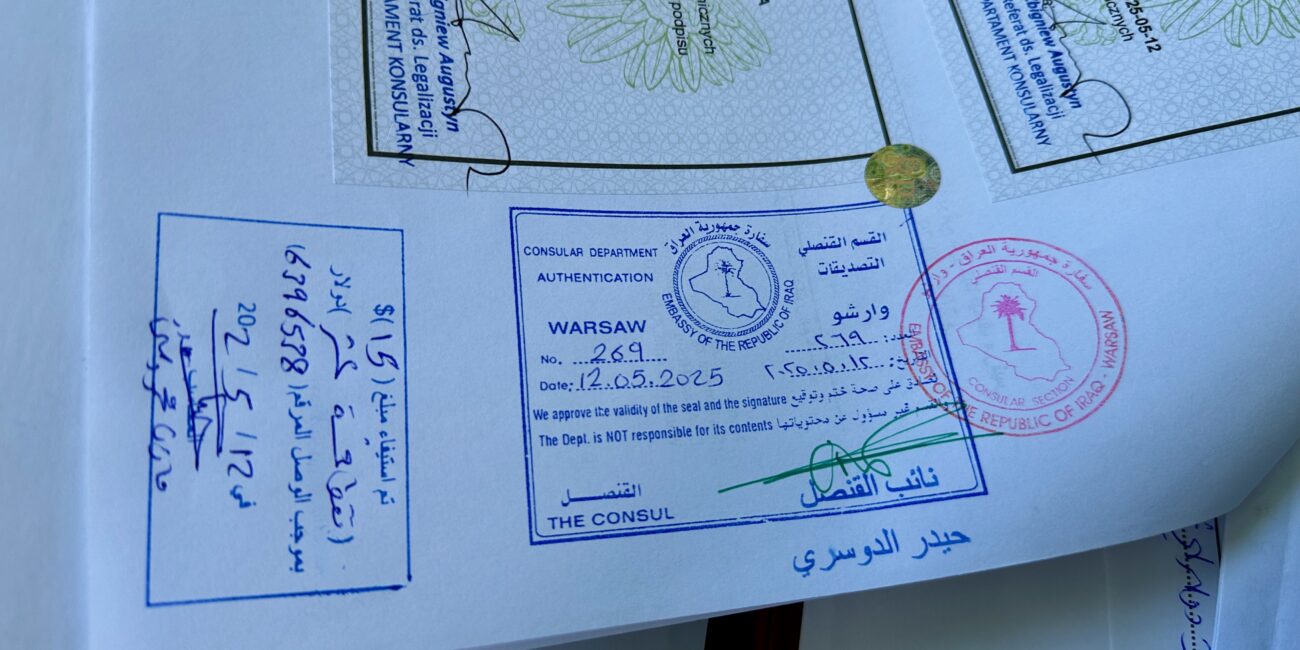 podpisu
Zbigniew Augustyn
Referat ds. Legalizacji
DEPARTAMENT KONSULARNY
25-05-12
Zbigniew Augustyn
Referat ds. Legalizacji
DEPARTAMENT KONSULARNY
تم استيفاء مبلغ (15)$
دولار
بموجب الوصل المرقم (6396528)
في 12 / 5 / 202
CONSULAR DEPARTMENT
AUTHENTICATION
WARSAW
No. 269
Date: 12.05.2025
سفارة جمهورية العراق
EMBASSY OF THE REPUBLIC OF IRAQ
القسم القنصلي
التصديقات
وارشو
العدد: ٢٦٩
We approve the validity of the seal and the signature على صحة ختم وتوقيع
The Dept. is NOT responsible for its contents مسؤول عن محتوياتها
القنصل
THE CONSUL
نائب القنصل
حيدر الدوسري
سفارة جمهورية العراق - وارشو
القسم القنصلي
CONSULAR SECTION
EMBASSY OF THE REPUBLIC OF IRAQ - WARSAW